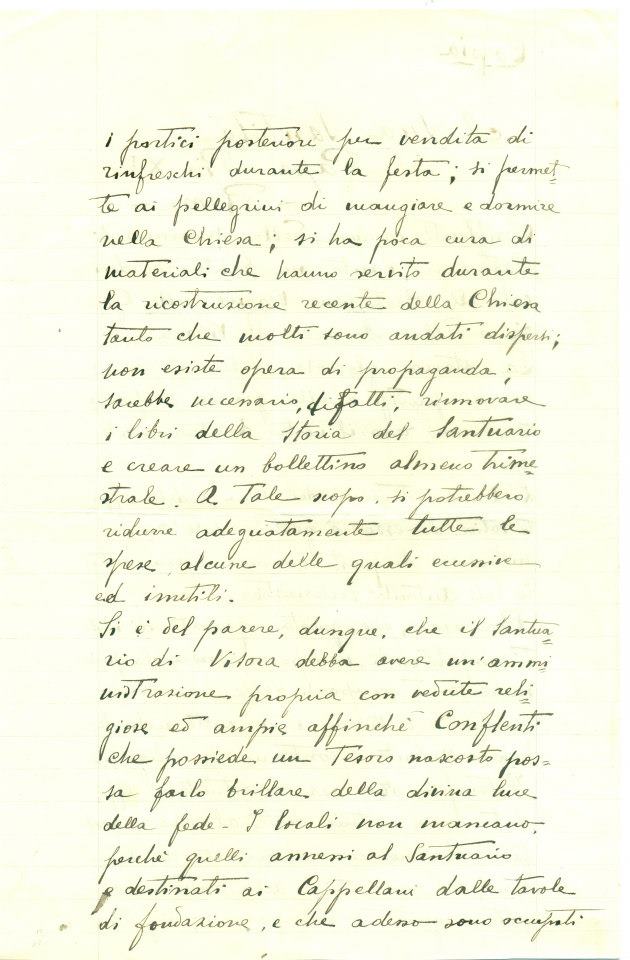 i portici posteriore per vendita di
rinfreschi durante la festa; si permet=
te ai pellegrini di mangiare e dormire
nella Chiesa; si ha poca cura di
materiali che hanno servito durante
la ricostruzione recente della Chiesa
tanto che molti sono andati dispersi;
non esiste opera di propaganda;
sarebbe necessario, difatti, rinnovare
i libri della Storia del Santuario
e creare un bollettino almeno trime=
strale. A Tale scopo, si potrebbero
ridurre adeguatamente tutte le
spese, alcune delle quali eccessive
ed inutili.
Si è del parere, dunque, che il Santua=
rio di Visora debba avere un'ammi
nistrazione propria con vedute reli=
giose ed ampie affinchè Conflenti
che possiede un Tesoro nascosto pos=
sa farlo brillare della divina luce
della fede - I locali non mancano,
perchè quelli annessi al Santuario
e destinati ai Cappellani dalle tavole
di fondazione, e che adesso sono occupati